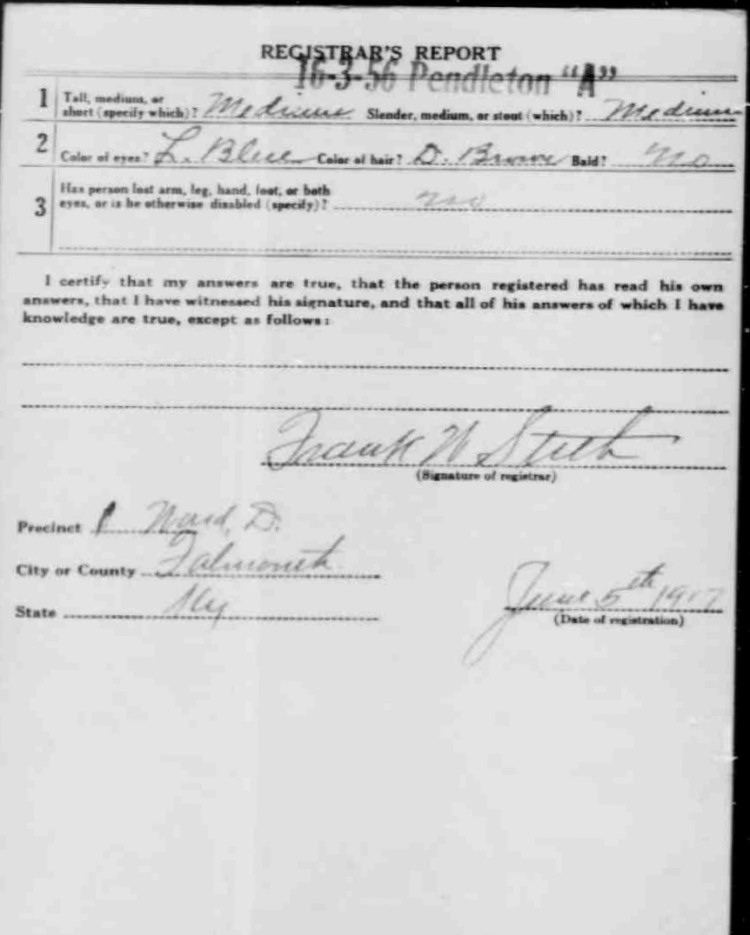 REGISTRAR'S REPORT
16-3-56 Pendleton "A"
1 Tall, medium, or
short (specify which)? Medium Slender, medium, or stout (which)? Medium
2 Color of eyes? L. Blue Color of hair? D. Brown Bald? no
Has person lost arm, leg, hand, foot, or both
3 eyes, or is he otherwise disabled (specify)? no
I certify that my answers are true, that the person registered has read his own
answers, that I have witnessed his signature, and that all of his answers of which I have
knowledge are true, except as follows:
Frank W
(Signature of registrar)
Precinct Ward D.
City or County Falmouth
State Ky
June 5th 1917
(Date of registration)